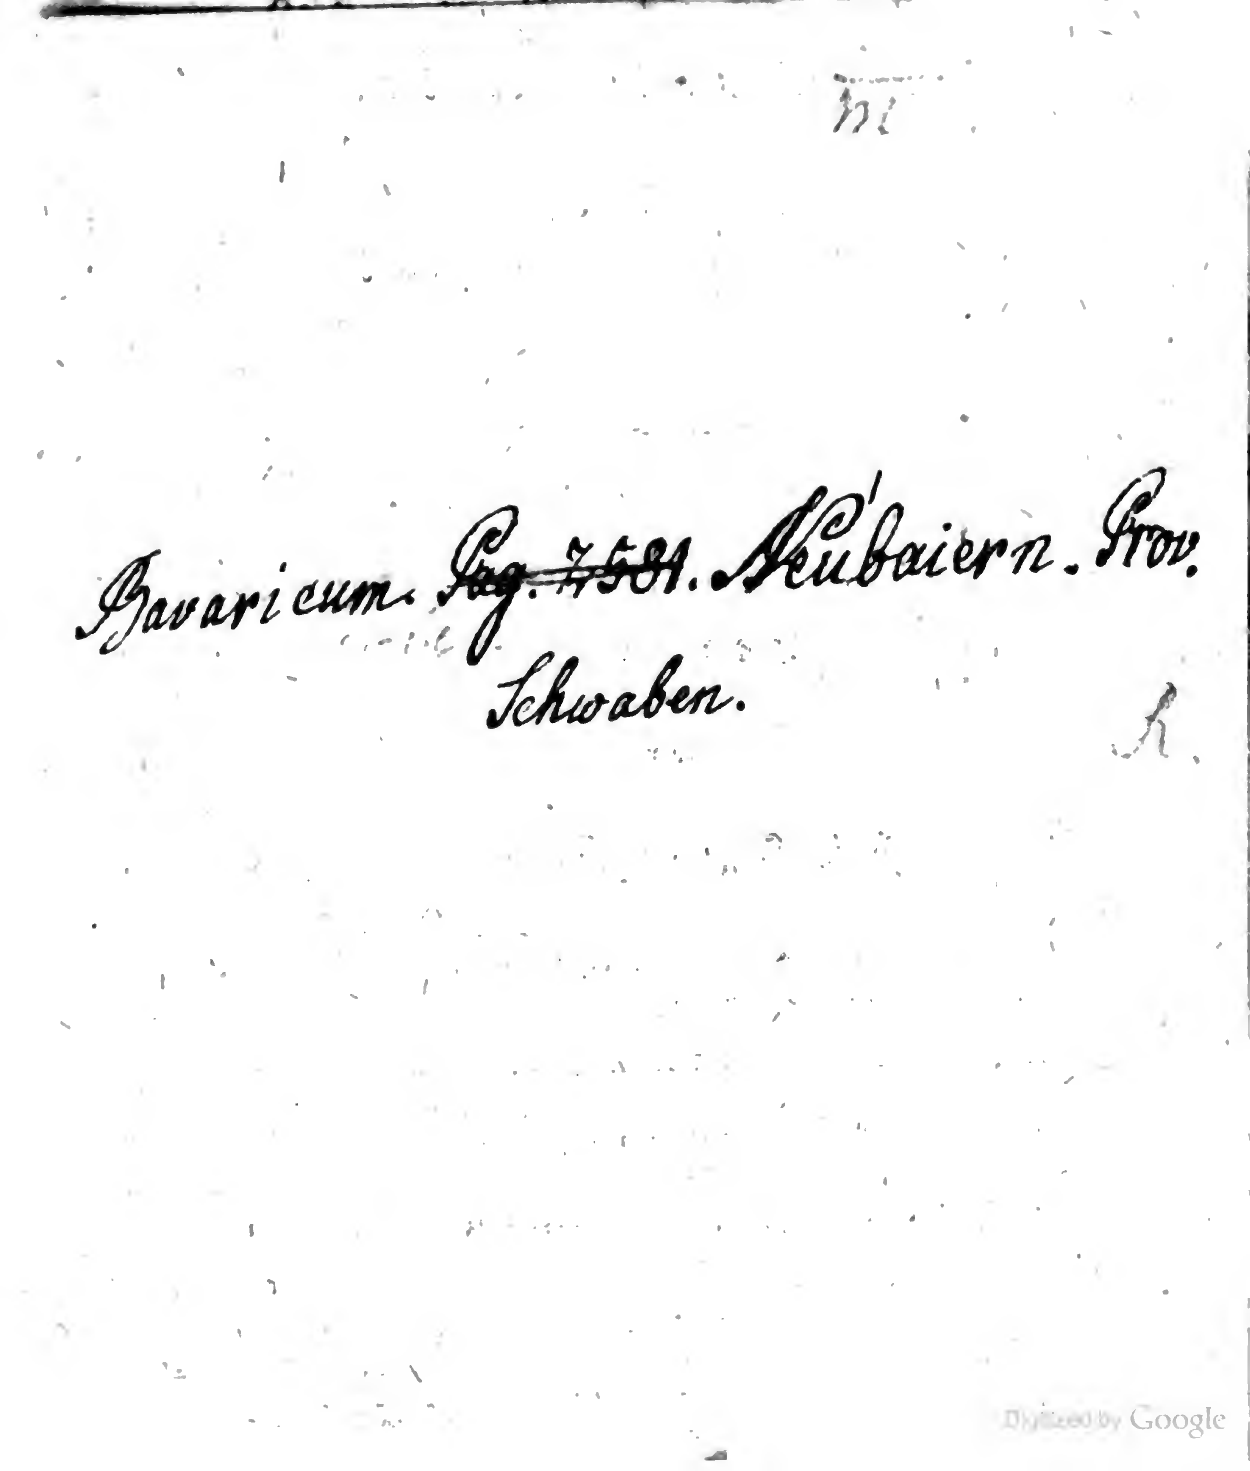 m
Bavaricum. Pag. 7581. Neubaiern. Prov.
Schwaben.
K.
Digitized by Google